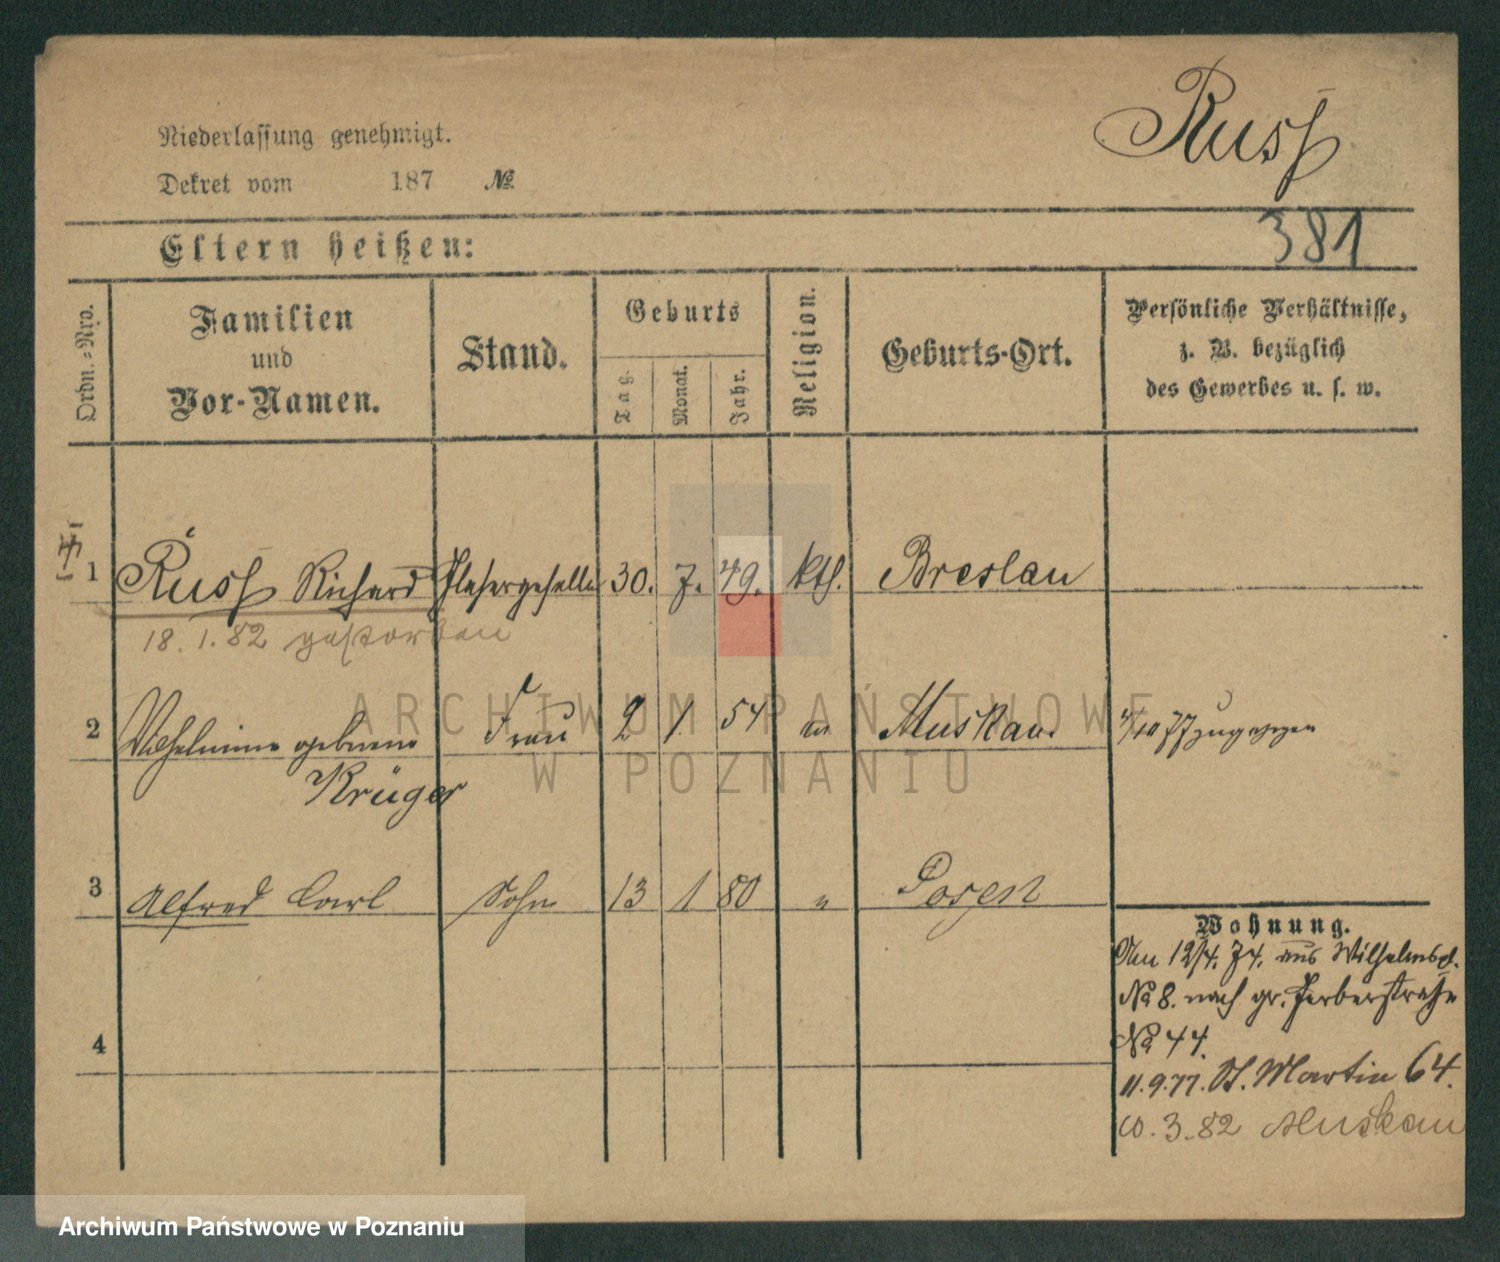 Niederlassung genehmigt.
Dekret vom 187 №
Russ
381
Eltern heißen:
Ordn.-Nro.
Familien
und
Vor-Namen.
Stand.
Geburts
Tag.
Monat.
Jahr.
Religion.
Geburts-Ort.
Persönliche Verhältnisse,
z. B. bezüglich
des Gewerbes u. s. w.
1 Russ Richard 30. 7. 49. kth. Breslau
18.1.82 gestorben
2 Wilhelmine geborene Frau 2 1. 54 Muskau 77 zugezogen
Krüger
3 Alfred Carl Sohn 13 1 80 " Posen
Wohnung.
Am 12/4. 74. aus Wilhelmspl.
№ 8. nach gr. Gerberstraße
№ 44.
11.9.77. St. Martin 64.
10.3.82 Muskau
4
ARCHIWUM PAŃSTWOWE
W POZNANIU
Archiwum Państwowe w Poznaniu